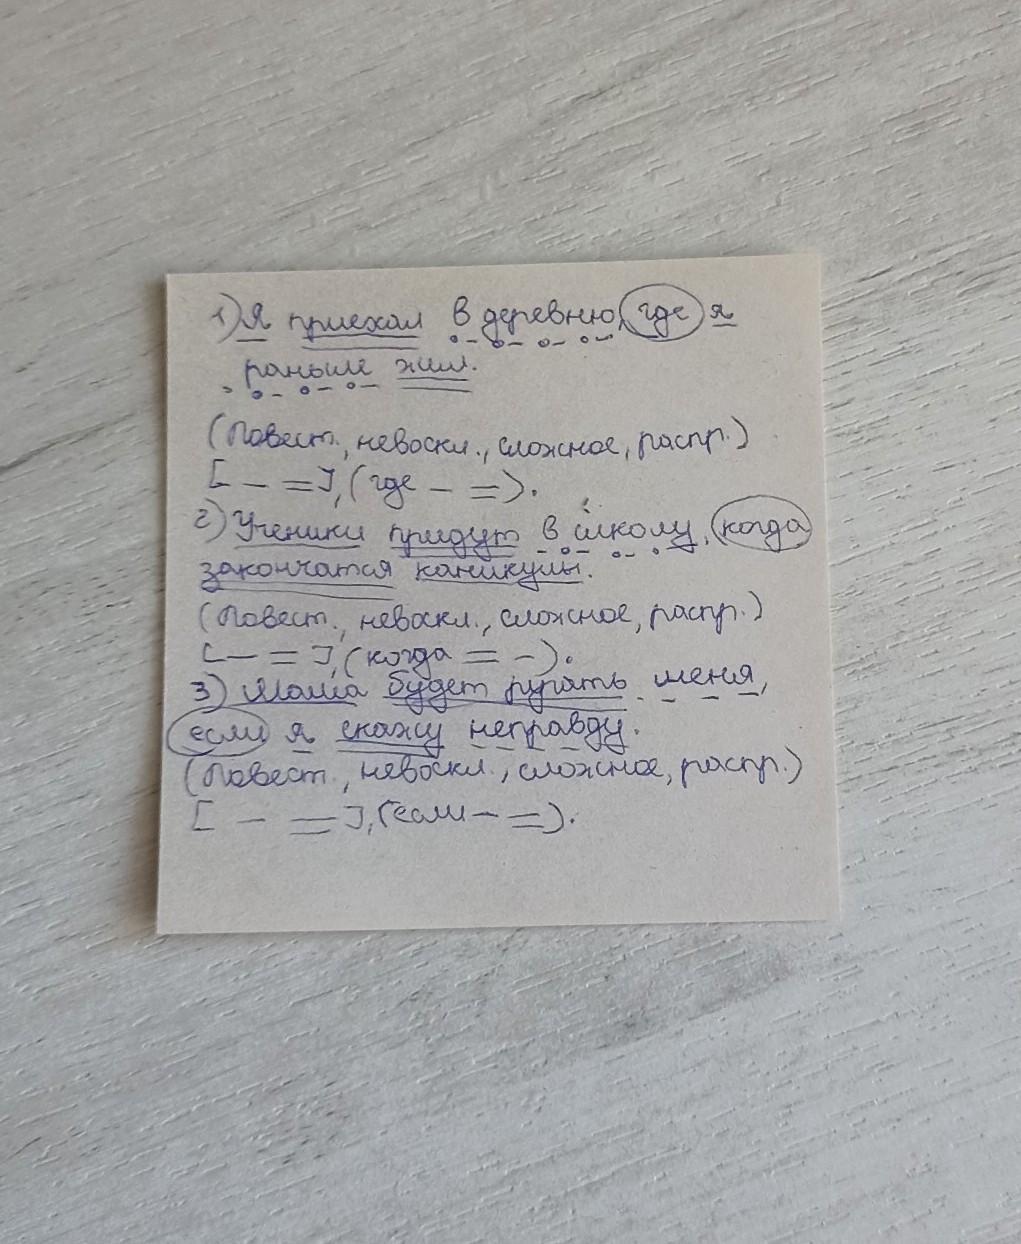 1) Я приехал в деревню, где я
раньше жил.
(Повест., невоскл., сложное, распр.)
[ – = ], (где – = ).
2) Ученики придут в школу, когда
закончатся каникулы.
(Повест., невоскл., сложное, распр.)
[ – = ], (когда = – ).
3) Мама будет ругать меня,
если я скажу неправду.
(Повест., невоскл., сложное, распр.)
[ – = ], (если – = ).